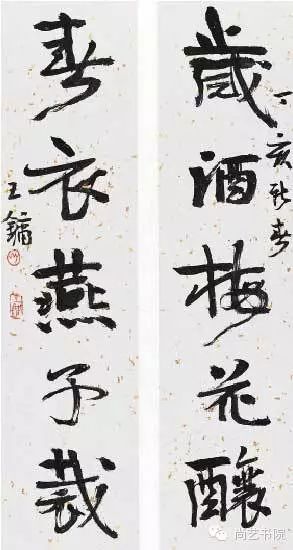 歲酒梅花釀
丁亥新春
春衣燕子裁
王鏞
尚艺书院